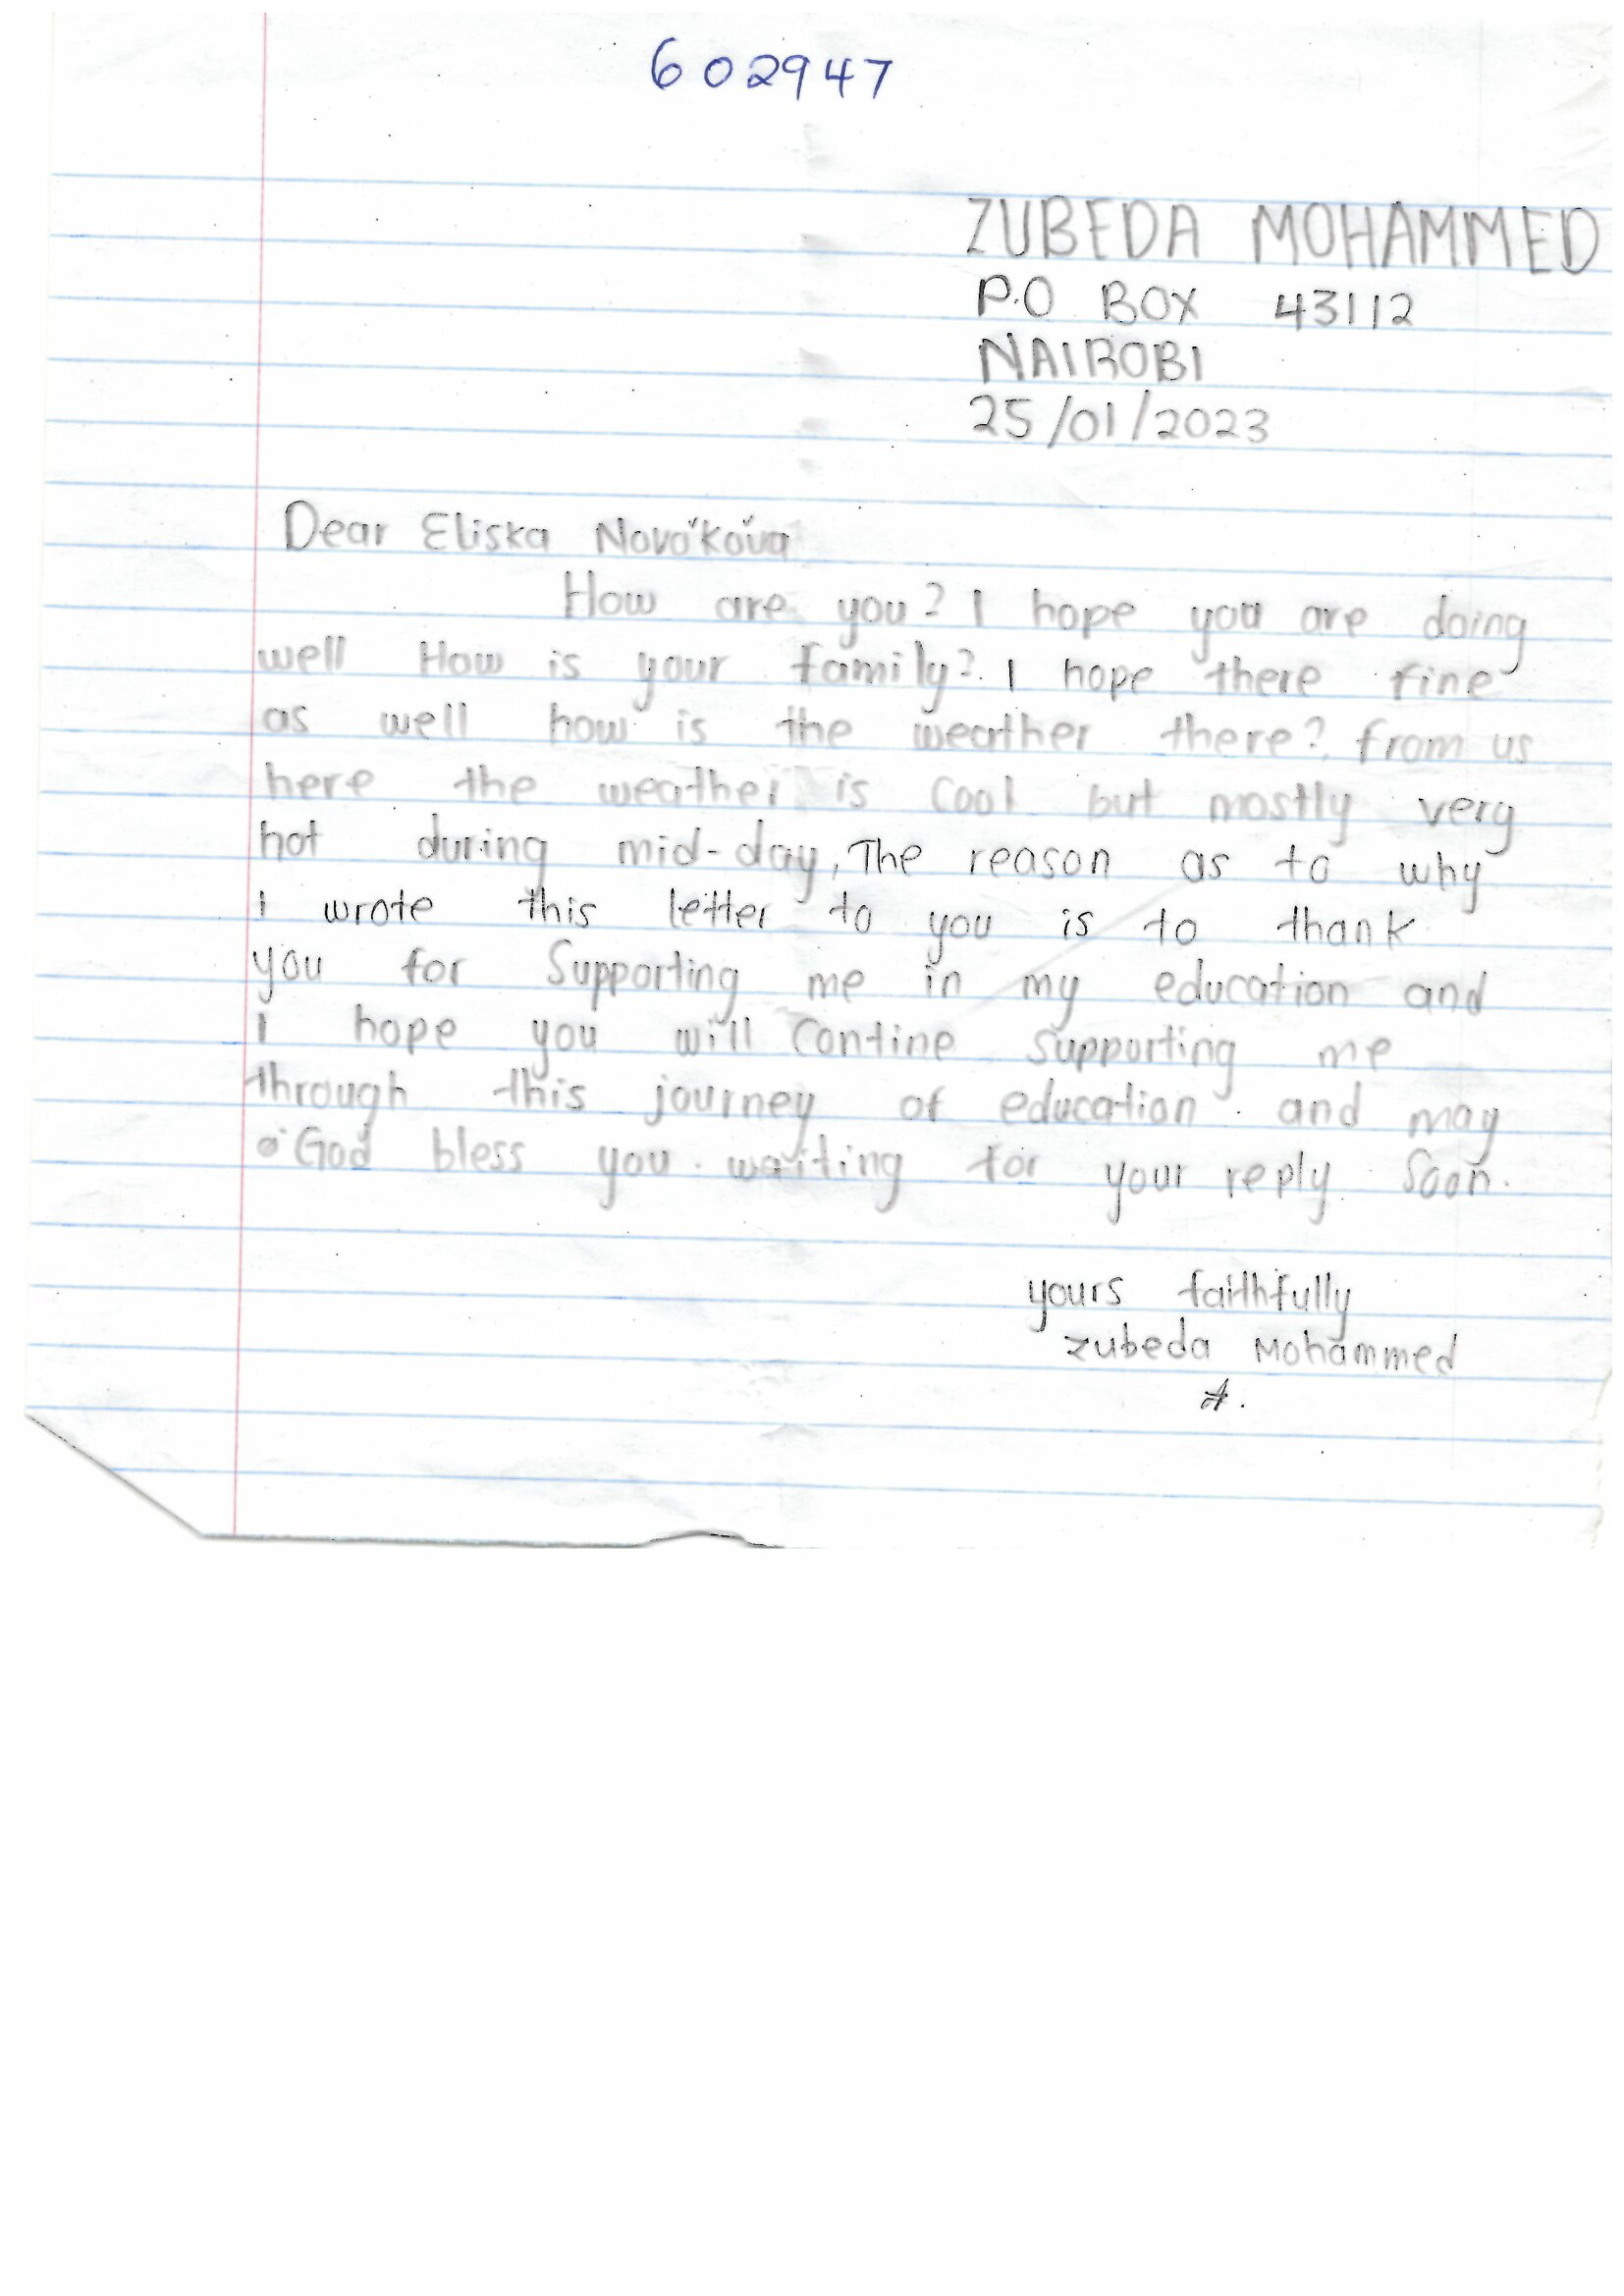 602947
ZUBEDA MOHAMMED
P.O BOX 43112
NAIROBI
25/01/2023
Dear Eliska Nová'kóva
How are you? I hope you are doing
well How is your family?. I hope there fine
as well how is the weather there? from us
here the weather is cool but mostly very
hot during mid-day, The reason as to why
I wrote this letter to you is to thank
you for Supporting me in my education and
I hope you will Contine supporting me
through this journey of education. and may
God bless you. waiting for your reply Soon.
yours faithfully
zubeda Mohammed
A.